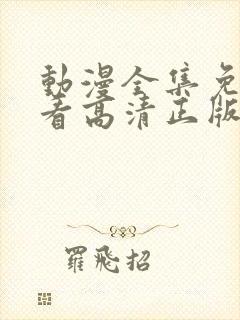 動漫全集免
看高清正版
羅飛招